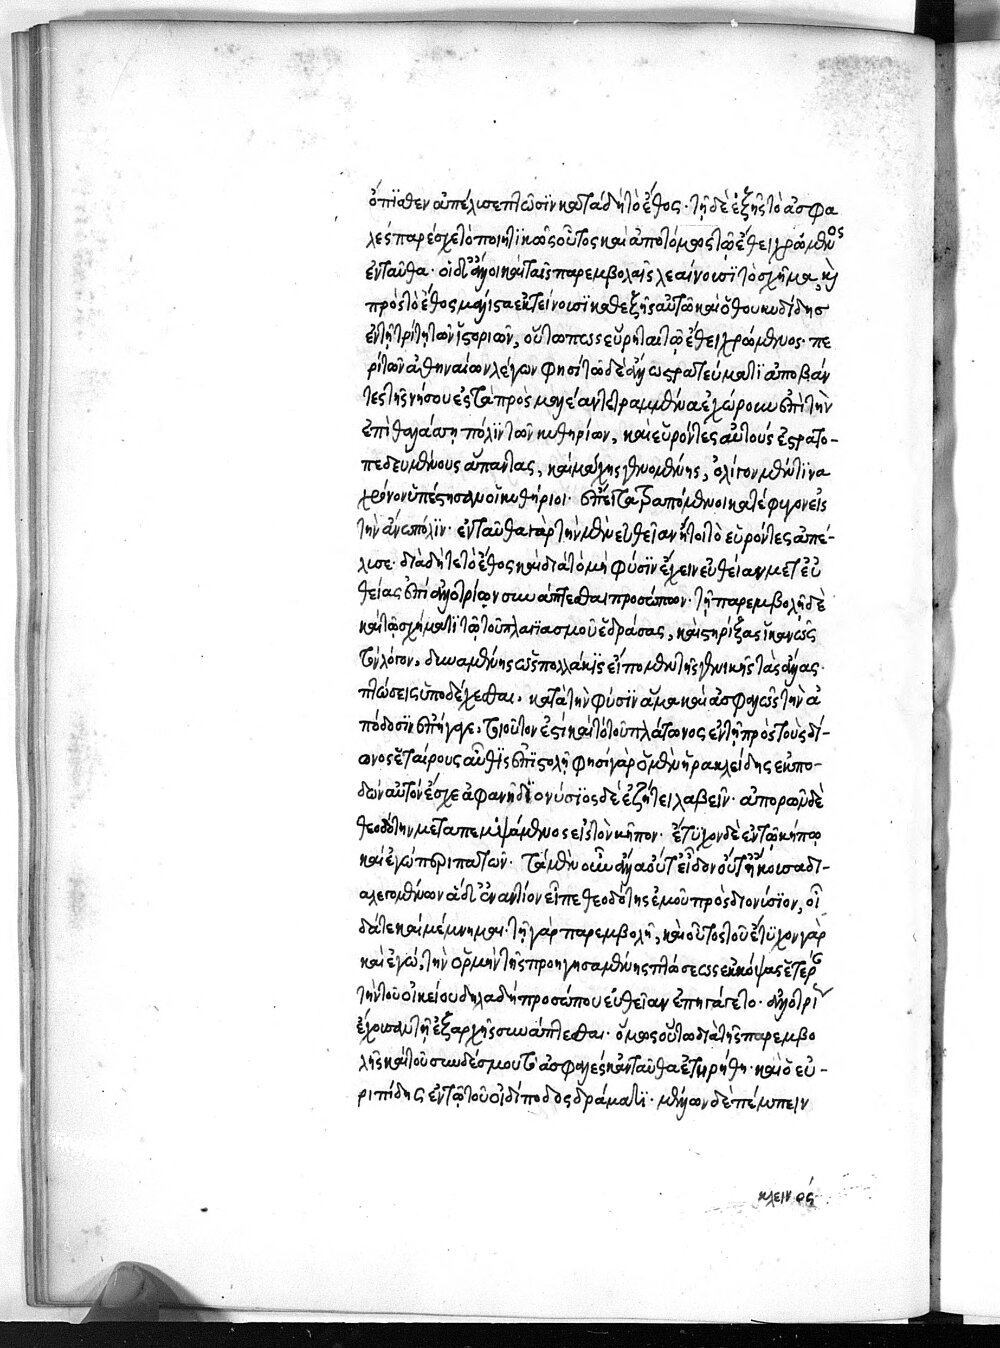 ὄπϊσθεν ἀπέλισε πτῶσϊν κατὰ δὴ τὸ ἔθος· τῇ δὲ ἑξῆς τὸ ἀσφα
λὲς παρέσχετο ποιητϊκῶς οὗτος καὶ ἀποτόμως τῷ ἔθει χρώμενος
ἐνταῦθα· οἱ δ' ἄλλοι καὶ ταῖς παρεμβολαῖς λεαίνουσϊ τὸ σχῆμα, καὶ
πρὸς τὸ ἔθος μάλιστα ἐκτείνουσϊ καθεξῆς αὐτῶν καὶ ὁ θουκυδίδης
ἐν τῇ τρίτῃ τῶν ἱστοριῶν, οὕτω πως εὕρηται τῷ ἔθει χρώμενος· πε
ρὶ τῶν ἀθηναίων λέγων φησὶ τῷ δὲ ἄλλῳ στρατεύματϊ ἀποβάν
τες τῆς νήσου ἐς τὰ πρὸς μαλέαν τετραμμένα ἐχώρουν ἐπὶ τὴν
ἐπὶ θαλάσσῃ πόλϊν τῶν κυθηρίων, καὶ εὑρόντες αὐτοὺς ἐστρατο-
πεδευμένους ἅπαντας, καὶ μάχης γενομένης, ὀλίγον μέν τϊνα
χρόνον ὑπέστησαν οἱ κυθήριοι· ἔπειτα τραπόμενοι κατέφυγον εἰς
τὴν ἄνω πόλϊν· ἐνταῦθα γὰρ τὴν μὲν εὐθεῖαν ἤτοι τὸ εὑρόντες ἀπέ-
λισε· διὰ δὴ τὸ ἔθος καὶ διὰ τὸ μὴ φύσϊν ἔχειν εὐθεῖαν μετ' εὐ
θείας ἐπὶ ἀλλοτρίων συνάπτεσθαι προσώπων· τῇ παρεμβολῇ δὲ
καὶ τῷ σχήματϊ τῷ τοῦ πλαγϊασμοῦ ἑδράσας, καὶ στηρίξας ἱκανῶς
τὸν λόγον, δυναμένης ὡς πολλάκϊς εἴπομεν τῆς γενικῆς τὰς ἄλλας
πτώσεις ὑποδέχεσθαι, κατὰ τὴν φύσϊν ἅμα καὶ ἀσφαλῶς τὴν ἀ
πόδοσϊν ἐπήγαγε, τοιοῦτον ἐστὶ καὶ τὸ τοῦ πλάτωνος ἐν τῇ πρὸς τοὺς δί-
ωνος ἑταίρους αὖθϊς ἐπϊστολῇ φησὶ γὰρ ὁ μὲν ἡρακλείδης ἐκπο-
δὼν αὑτὸν ἔσχε ἀφανῆ δϊονύσϊος δὲ ἐζήτει λαβεῖν· ἀπορῶν δὲ
θεοδότην μεταπεμψάμενος εἰς τὸν κῆπον· ἔτϋχον δὲ ἐν τῷ κήπῳ
καὶ ἐγὼ περιπατῶν· τὰ μὲν οὖν ἄλλα οὔτ' εἶδον οὔτ' ἤκουσα δι-
αλεγομένων ἃ δ' ἐναντίον εἶπε θεοδότης ἐμοῦ πρὸς διονύσϊον, οἶ
δά τε καὶ μέμνημαι· τῇ γὰρ παρεμβολῇ, καὶ οὗτος τοῦ ἔτϋχον γὰρ
καὶ ἐγώ, τὴν ὁρμὴν τῆς προηγησαμένης πτώσεως ἐκκόψας ἑτέρ
τὴν τοῦ οἰκείου δηλαδὴ προσώπου εὐθεῖαν ἐπηγάγετο· ἀλλοτρί
ἔχουσαν τῇ ἐξαρχῆς συνάπτεσθαι· ὅμως οὕτω διὰ τῆς παρεμβο
λῆς καὶ τοῦ συνδέσμου τὸ ἀσφαλὲς κἀνταῦθα ἐτηρήθη· καὶ ὁ εὐ-
ριπίδης ἐν τῷ τοῦ οἰδίποδος δράματϊ· μέλλων δὲ πέμπειν
κλεινὸς